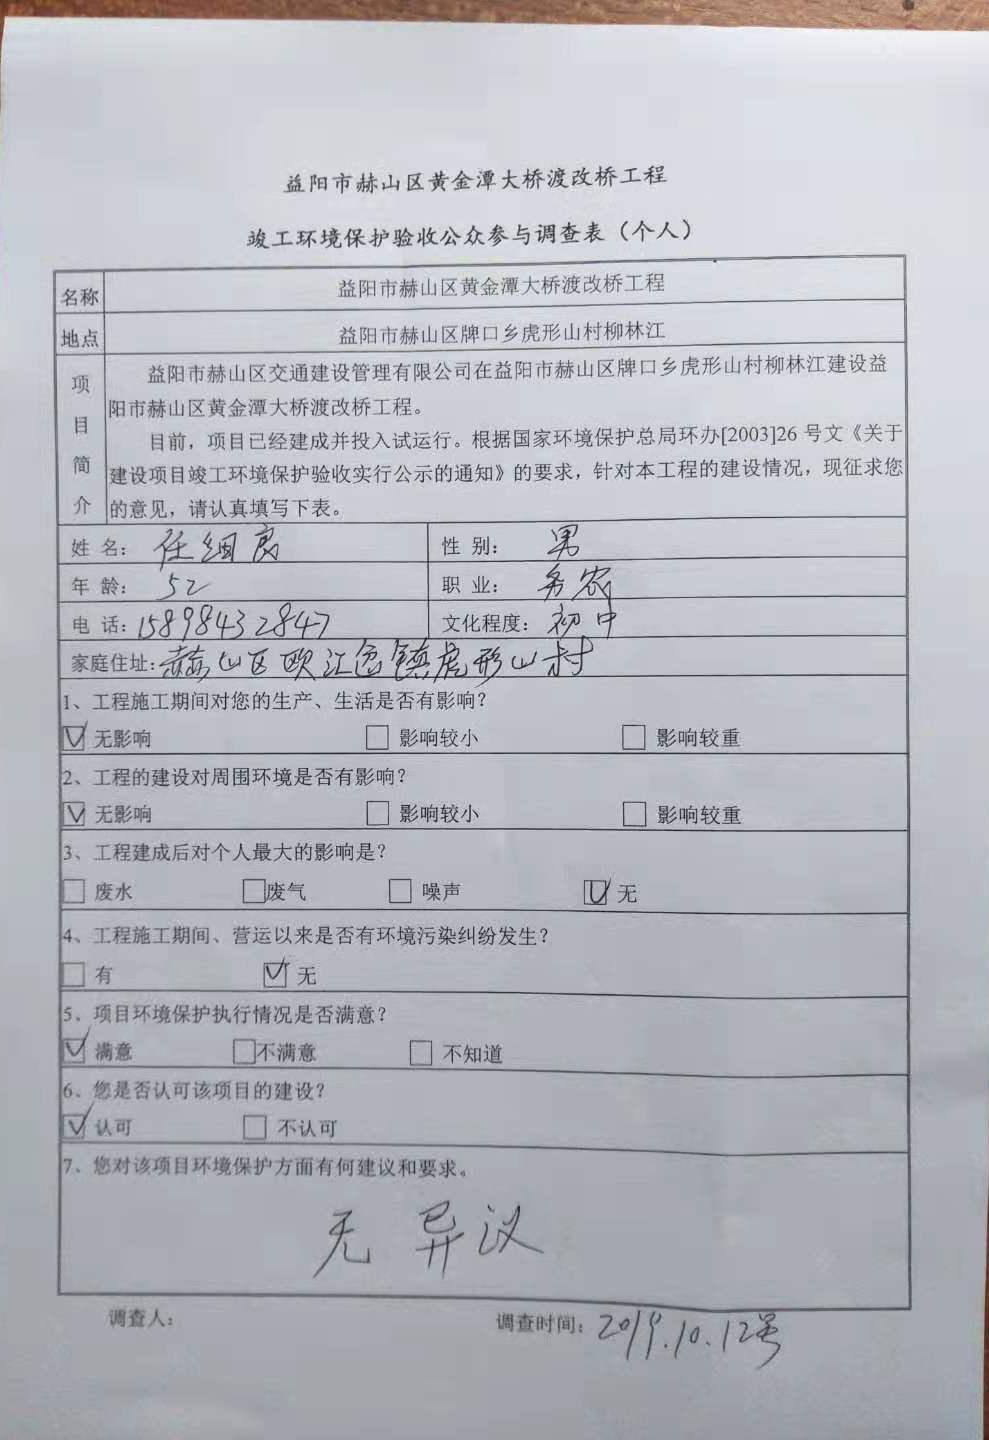 益阳市赫山区黄金潭大桥渡改桥工程
竣工环境保护验收公众参与调查表（个人）
名称 益阳市赫山区黄金潭大桥渡改桥工程
地点 益阳市赫山区牌口乡虎形山村柳林江
项目简介
益阳市赫山区交通建设管理有限公司在益阳市赫山区牌口乡虎形山村柳林江建设益
阳市赫山区黄金潭大桥渡改桥工程。
目前，项目已经建成并投入试运行。根据国家环境保护总局环办[2003]26 号文《关于
建设项目竣工环境保护验收实行公示的通知》的要求，针对本工程的建设情况，现征求您
的意见，请认真填写下表。
姓 名： 任细 性 别： 男
年 龄： 52 职 业： 务农
电 话：15898432847 文化程度： 初中
家庭住址：赫山区欧江岔镇虎形山村
1、工程施工期间对您的生产、生活是否有影响？
☑ 无影响 □ 影响较小 □ 影响较重
2、工程的建设对周围环境是否有影响？
☑ 无影响 □ 影响较小 □ 影响较重
3、工程建成后对个人最大的影响是？
□ 废水 □废气 □ 噪声 ☑ 无
4、工程施工期间、营运以来是否有环境污染纠纷发生？
□ 有 ☑ 无
5、项目环境保护执行情况是否满意？
☑ 满意 □不满意 □ 不知道
6、您是否认可该项目的建设？
☑ 认可 □ 不认可
7、您对该项目环境保护方面有何建议和要求。
无异议
调查人： 调查时间：2019.10.12号